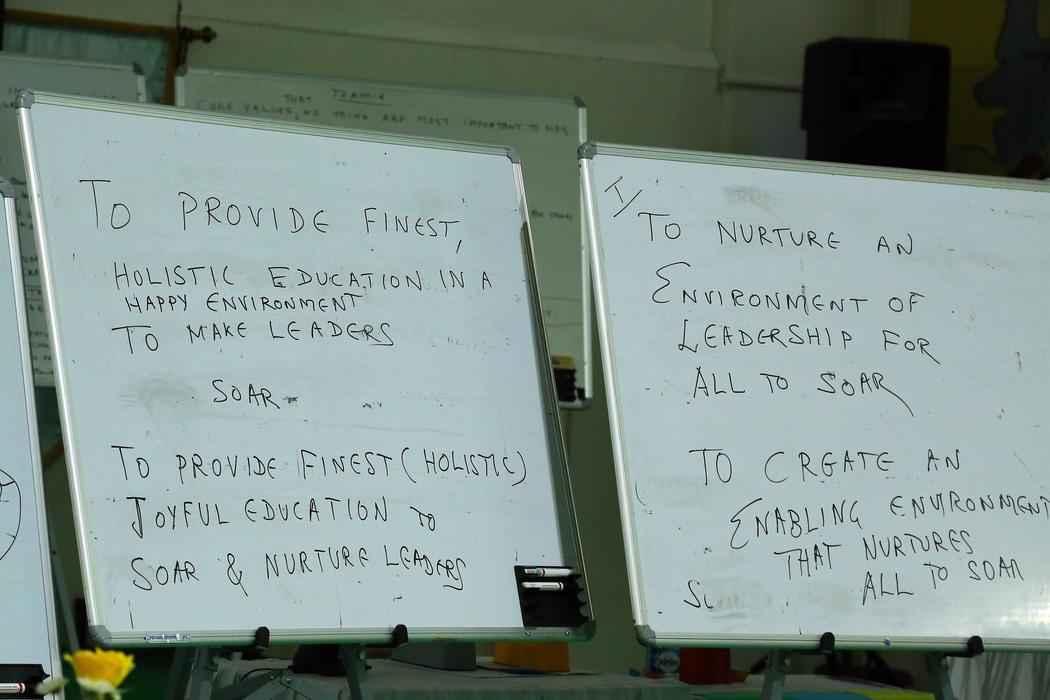 THAT TEAMIX
CORE VALUES, WE THINK ARE MOST IMPORTANT TO
TO PROVIDE FINEST,
HOLISTIC EDUCATION IN A
HAPPY ENVIRONMENT
TO MAKE LEADERS
SOAR
TO PROVIDE FINEST (HOLISTIC)
JOYFUL EDUCATION TO
SOAR & NURTURE LEADERS
1/
TO NURTURE AN
ENVIRONMENT OF
LEADERSHIP FOR
ALL TO SOAR
TO CREATE AN
ENABLING ENVIRONMENT
THAT NURTURES
ALL TO SOAR